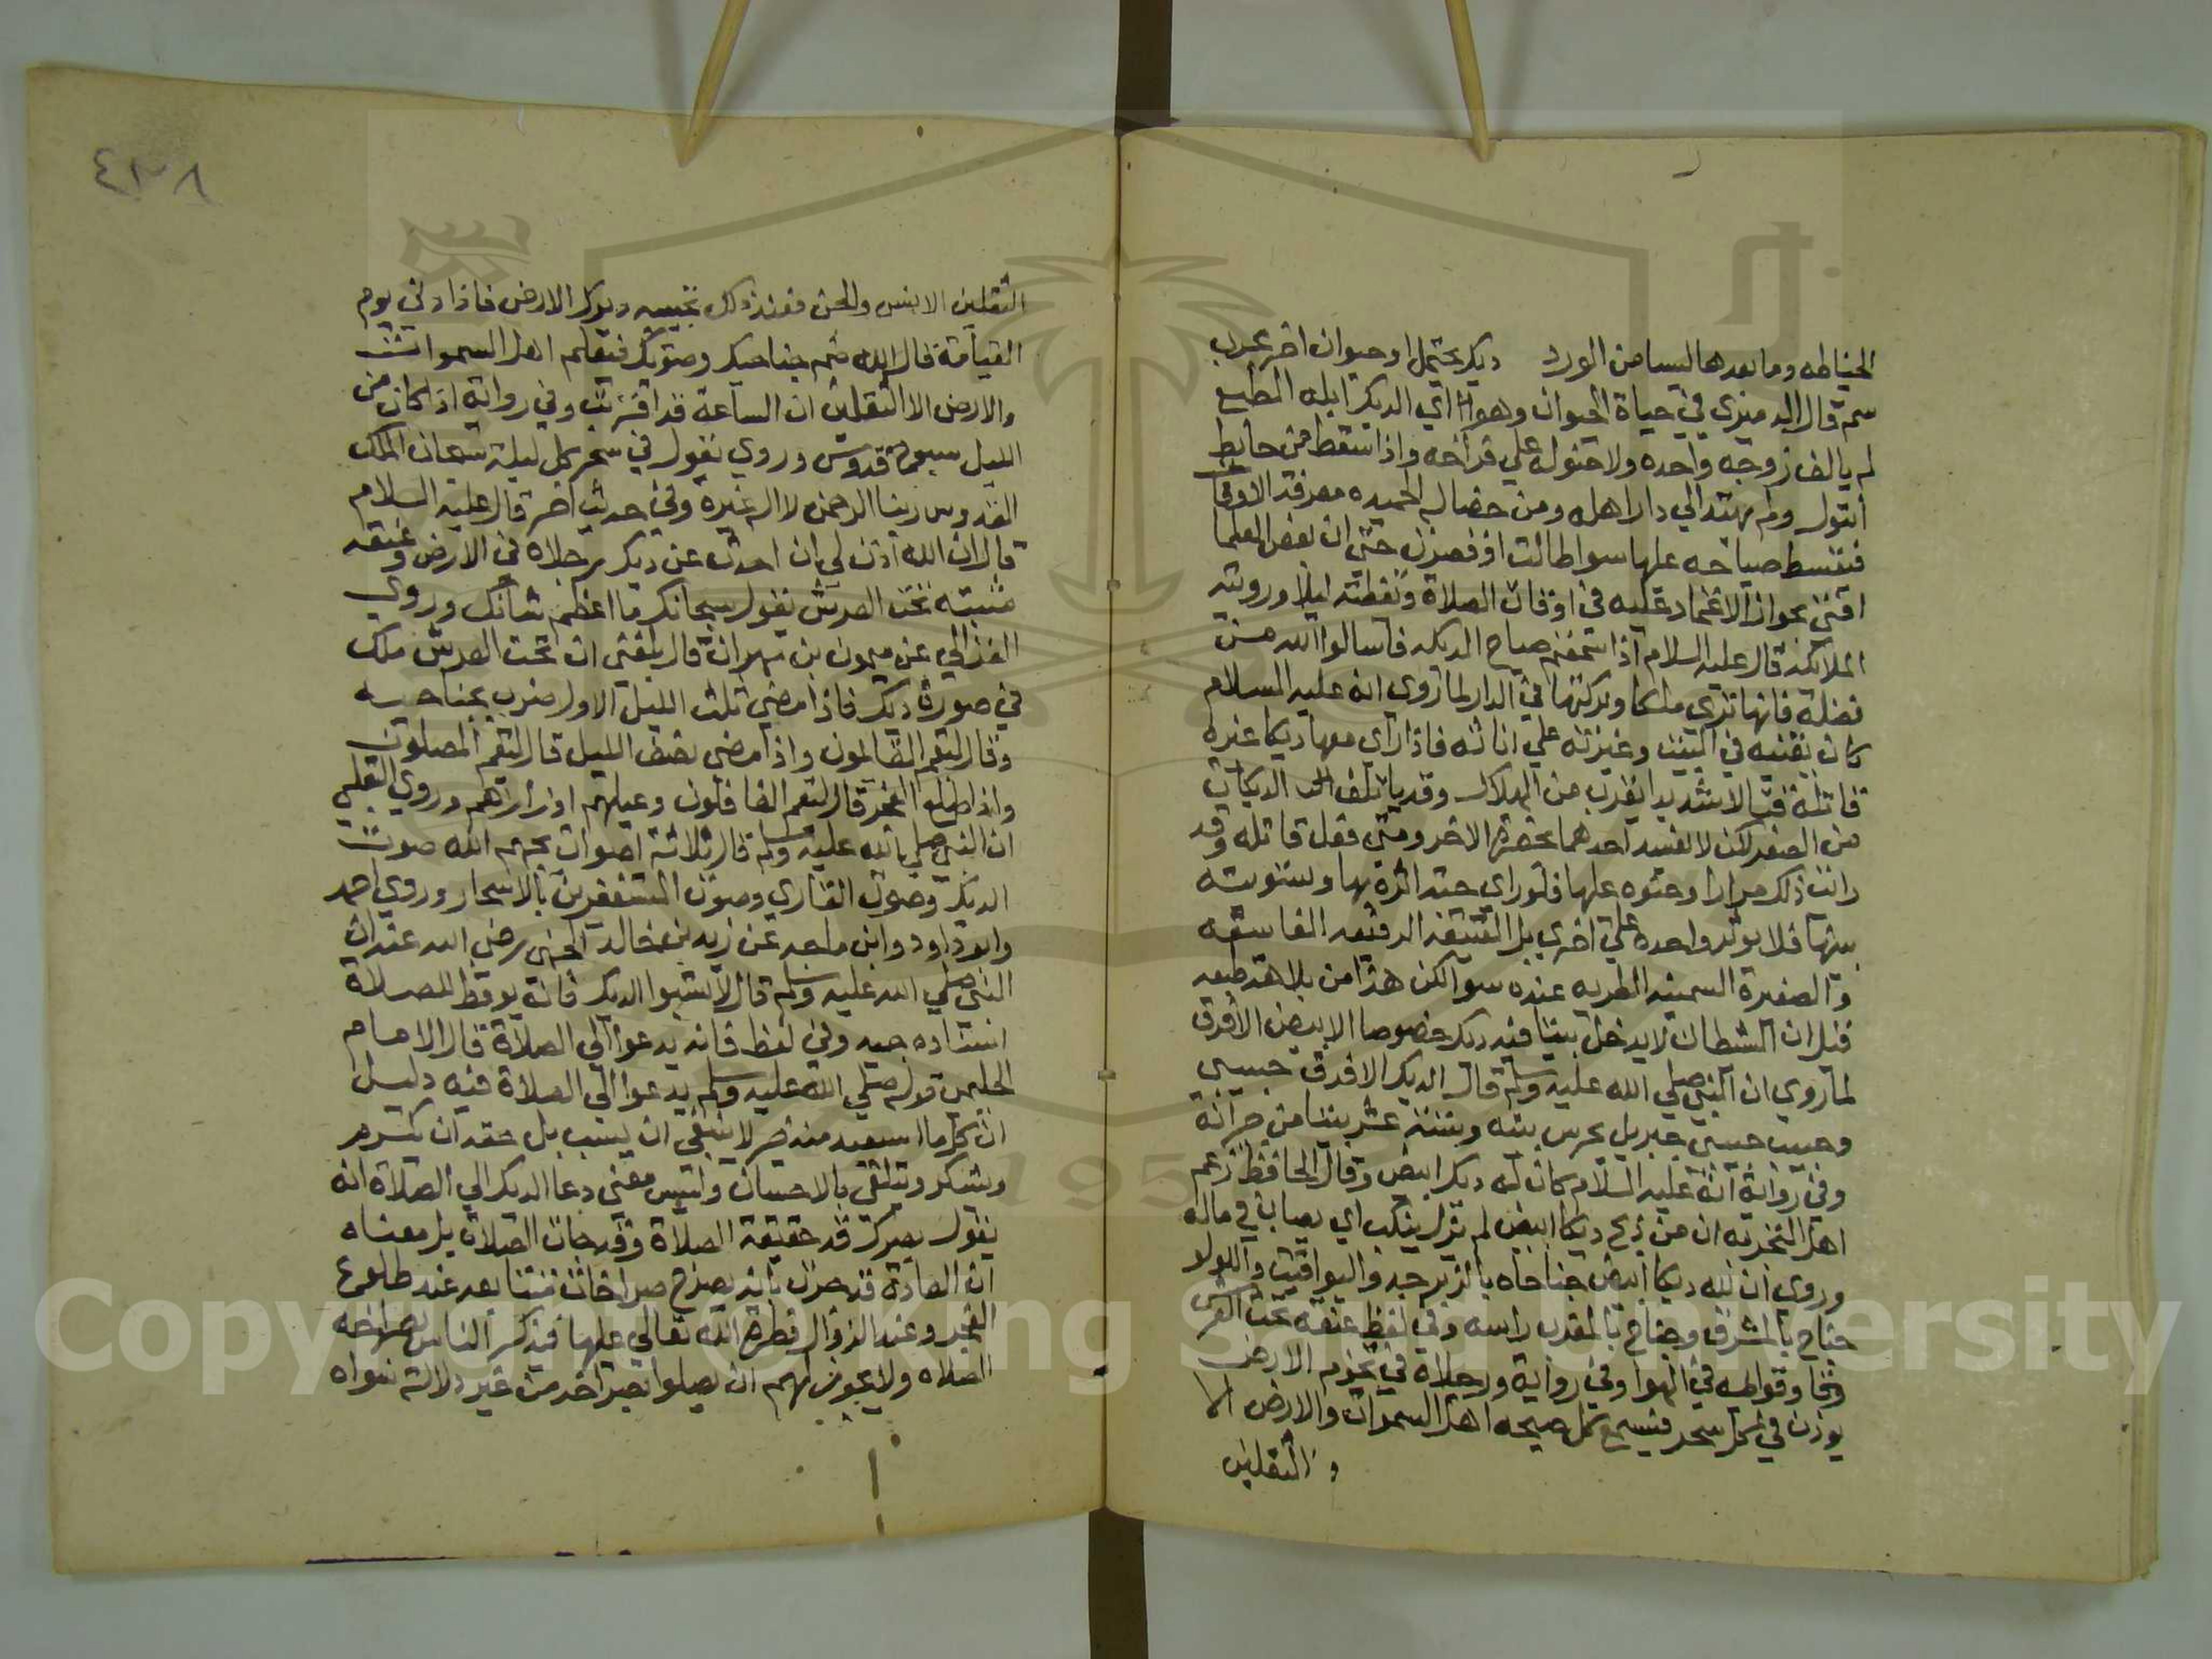 الخياطه وما بعدها ليسا من الورد ديك يحتمل او حيوان اخر مجرب
سمة قال الدميري في حياة الحيوان وهو اي الديك ابله الطبع
لم يالف زوجه واحده ولا حنو له علي فراخه واذا سقط من حايط
لم يهتد الي دار اهله ومن خصاله الحميده معرفة الاوقات
فيقسط صياحه عليها سوا طالت او قصرت حتي ان بعض العلما
افتي بجواز الاعتماد عليه في اوقات الصلاة ورويته
الملائكة قال عليه السلام اذا سمعتم صياح الديكه فاسالوا الله من
فضله فانها تري ملكا وبركتها في الدار لما روي انه عليه السلام
كان يقتنيه في البيت وغيرته علي اناثه فاذا راي معها ديكا غيره
قاتله قتالا شديدا يقرب من الهلاك وقد ياتلف الديكان
من الصغر لكن لا يفسد احدهما بحضرة الاخر ومتي فعل قاتله وقد
رايت ذلك مرارا وحنوه عليها فلو راي حبة اثره بها وتسويته
بينها فلا يوثر واحده علي اخري بل العتيقه الفاسقه
والصغيرة السمينه الطريه عنده سوا لكن هذا من بلاهة طبعه
قيل ان الشيطان لا يدخل بيتا فيه ديك خصوصا الابيض الافرق
لما روي ان النبي صلي الله عليه وسلم قال الديك الافرق حبيبي
وحبيب حبيبي جبريل يحرس بيته وستة عشر بيتا من جيرانه
وفي رواية انه عليه السلام كان له ديك ابيض وقال الحافظ زعم
اهل التجربه ان من ذبح ديكا ابيض لم يزل ينكب اي يصاب في ماله
وروي ان لله ديكا ابيض جناحاه بالزبرجد واليواقيت واللولو
جناح بالمشرق وجناح بالمغرب راسه وفي لفظ عنقه تحت العرش
وقوايمه في الهوا وفي رواية ورجلاه في تخوم الارض
يوذن في كل سحر فيسمع كل صيحه اهل السموات والارض الا
الثقلين
٤٣٨
الثقلين الانس والجن فعند ذلك تجيبه ديوك الارض فاذا دني يوم
القيامة قال الله ضم جناحيك وصوتك فيعلم اهل السموات
والارض الا الثقلين ان الساعة قد اقتربت وفي رواية اذا كان من
الليل سبوح قدوس وروي يقول في سحر كل ليلة سبحان الملك
القدوس ربنا الرحمن لا اله غيره وفي حديث اخر قال عليه السلام
قال ان الله اذن لي ان احدث عن ديك رجلاه في الارض وعنقه
مثبته تحت العرش يقول سبحانك ما اعظم شانك وروي
الغزالي عن ميمون بن مهران قال بلغني ان تحت العرش ملك
في صورة ديك فاذا مضي ثلث الليل الاول ضرب بجناحيه
وقال ليقم القايمون واذا مضي نصف الليل قال ليقم المصلون
واذا طلع الفجر قال ليقم الغافلون وعليهم اوزارهم وروي الثعلبي
ان النبي صلي الله عليه وسلم قال ثلاثة اصوات يحبهم الله صوت
الديك وصوت القاري وصوت المستغفرين بالاسحار وروي احمد
وابو داود وابن ماجه عن زيد بن خالد الجهني رضي الله عنه ان
النبي صلي الله عليه وسلم قال لا تسبوا الديك فانه يوقظ للصلاة
اسناده جيد وفي لفظ فانه يدعوا الي الصلاة قال الامام
الحليمي قوله صلي الله عليه وسلم يدعوا الي الصلاة فيه دليل
ان كل ما استفيد منه خير لا ينبغي ان يسب بل حقه ان يكرم
ويشكر ويتلقي بالاحسان وليس معني دعا الديك الي الصلاة انه
يقول بصراخه حقيقة الصلاة او قد حانت الصلاة بل معناه
ان العادة قد جرت بانه يصرخ صراخات متتابعه عند طلوع
الفجر وعند الزوال فطرة الله تعالي عليها فيذكر الناس بصراخه
الصلاه ولا يجوز لهم ان يصلوا بصراخه من غير دلالة سواه